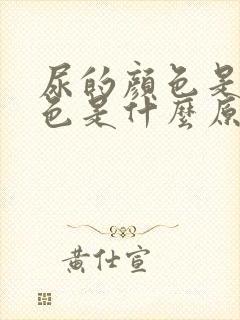 尿的顏色是
色是什麼原
黃仕宣